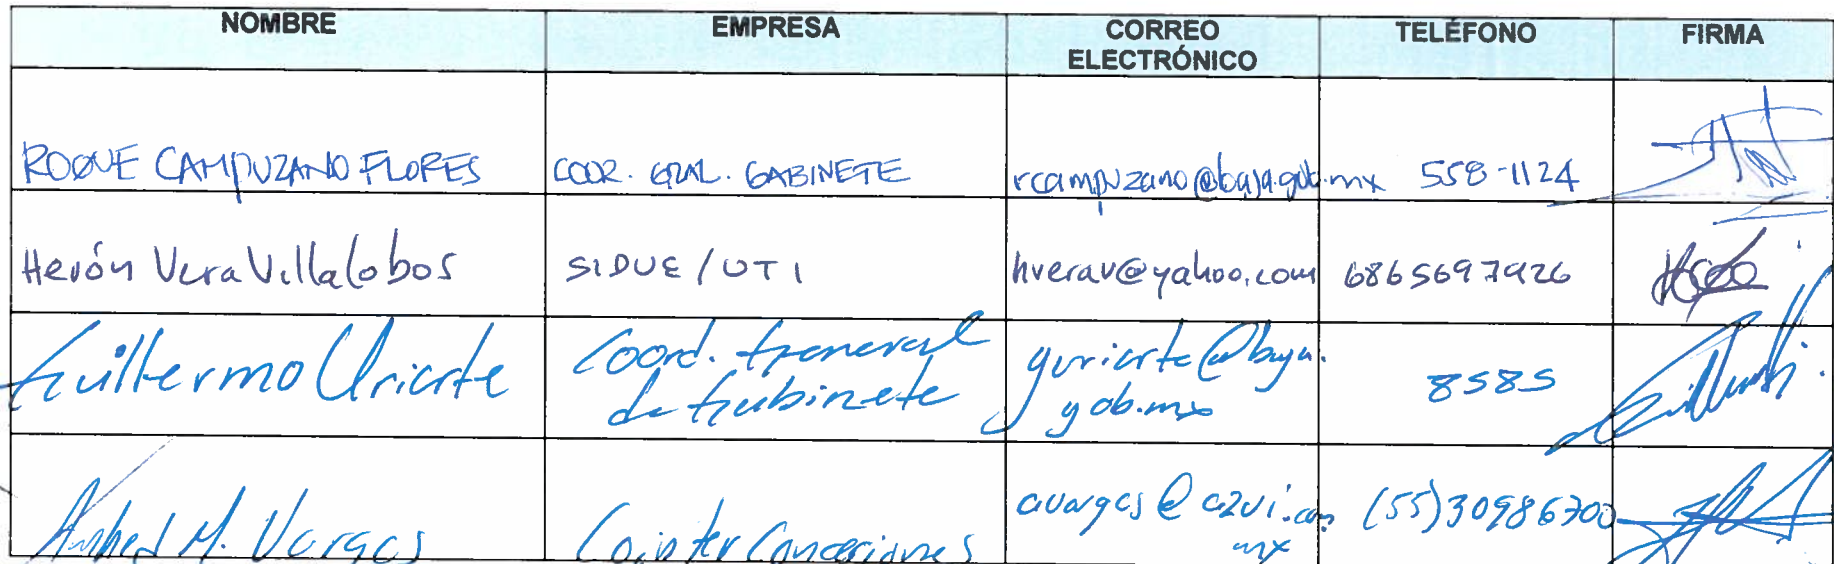 NOMBRE EMPRESA CORREO ELECTRÓNICO TELÉFONO FIRMA
ROQUE CAMPUZANO FLORES COOR. GRAL. GABINETE rcampuzano@baja.gob.mx 558-1124
Herón Vera Villalobos SIDUE / UTI hverav@yahoo.com 6865697926
Guillermo Uriarte Coord. General de Gabinete guriarte@baja.gob.mx 8585
M. Vargas Cointer Concesiones avargas@azvi.com.mx (55)30986700